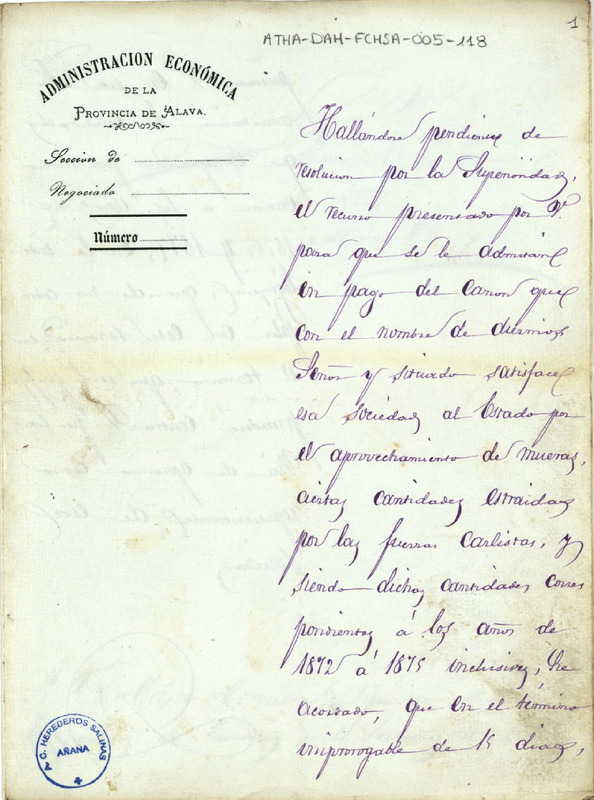 ATHA-DAH-FCHSA-005-118
1
ADMINISTRACION ECONÓMICA
DE LA
PROVINCIA DE ALAVA.
Seccion de
Negociado
Número
Hallándose pendiente de
resolucion por la Superioridad,
el recurso presentado por V.
para que se le admitan
en pago del canon que
con el nombre de diezmios
Señor y situado satisface
esa Sociedad al Estado por
el aprovechamiento de mueras,
ciertas cantidades estraidas
por las fuerzas carlistas, y
siendo dichas cantidades corres
pondientes á los años de
1872 á 1875 inclusives, he
acordado, que en el término
improrogable de 15 dias,
C. HEREDEROS SALINAS
AÑANA